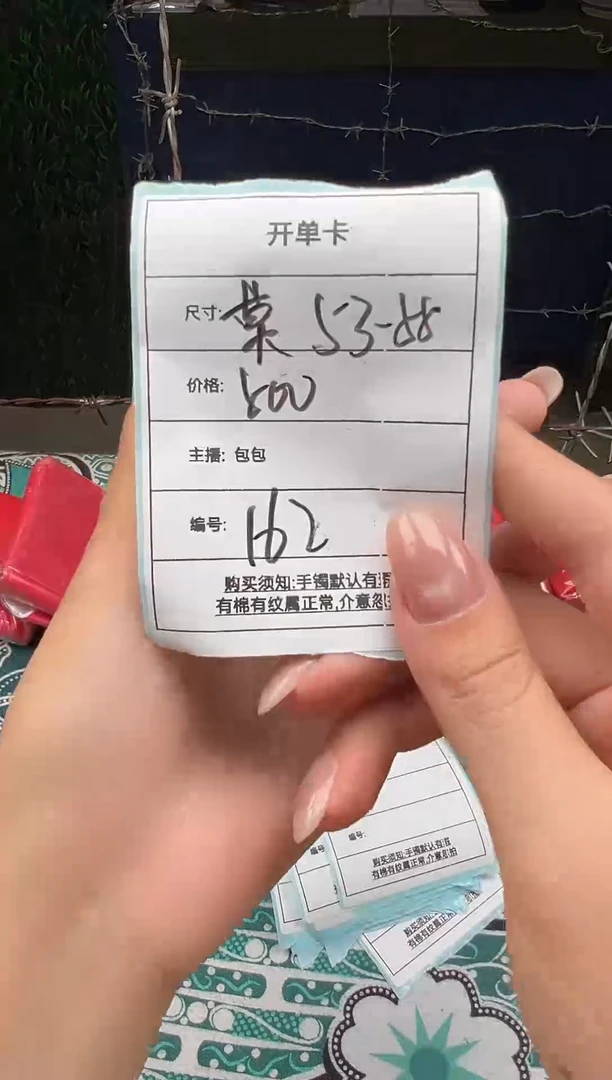 开单卡
尺寸: 菜 53-88
价格: 500
主播: 包包
编号: 162
购买须知:手镯默认有
有棉有纹属正常,介意忽
编号:
编号:
购买须知:手镯默认有
有棉有纹属正常,介意忽拍
购买须知:
有棉有纹属正常